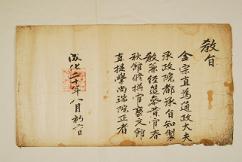 敎旨
金宗直爲通政大夫
承政院都承旨知製
敎兼經筵參贊官春
秋館修撰官藝文館
直提學尙瑞院正者
成化二十年八月初六日